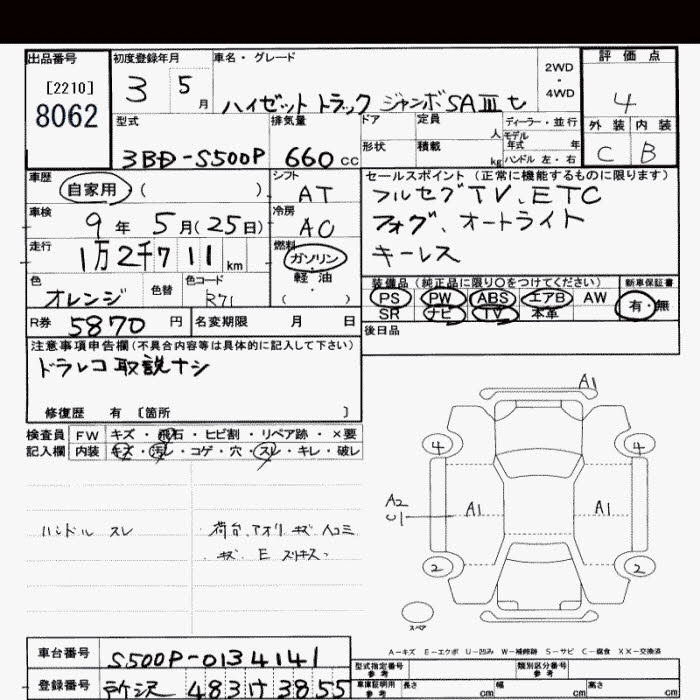 出品番号
[2210]
8062
初度登録年月
3 5 月
車名・グレード
ハイゼット トラック ジャンボSAⅢt
2WD
・
4WD
評価点
4
外装 内装
C B
型式
3BD-S500P
排気量
660 cc
ドア
形状
定員
人
積載
kg
ディーラー・並行
モデル
年式 年
ハンドル 左・右
車歴
自家用・( )
シフト
AT
車検
9年 5月(25日)
冷房
AC
走行
1万2千711 km
燃料
ガソリン
・
軽・油
( )
色
オレンジ
色替
色コード
R71
R券 5870 円
名変期限 月 日
セールスポイント(正常に機能するものに限ります)
フルセグTV、ETC
フォグ、オートライト
キーレス
装備品(純正品に限り〇をつけてください)
PS PW ABS エアB AW
SR ナビ TV 本革
新車保証書
有・無
後日品
注意事項申告欄(不具合内容等は具体的に記入して下さい)
ドラレコ取説ナシ
修復歴 有 〔箇所 〕
検査員
記入欄
FW キズ・飛石・ヒビ割・リペア跡・×要
内装 キズ・汚レ・コゲ・穴・スレ・キレ・破レ
ハンドル スレ
荷台、アオリ キズ 凹コミ
・キズ、E スリキズ
A1
4 4
A2
U1
A1 A1
2 2
スペア
A-キズ E-エクボ U-凹み W-補修跡 S-サビ C-腐食 XX-交換済
車台番号
S500P-0134141
登録番号
所沢 483 け 3855
型式指定番号
参考
類別区分番号
参考
車庫証明用
参考
長さ cm 幅 cm 高さ cm